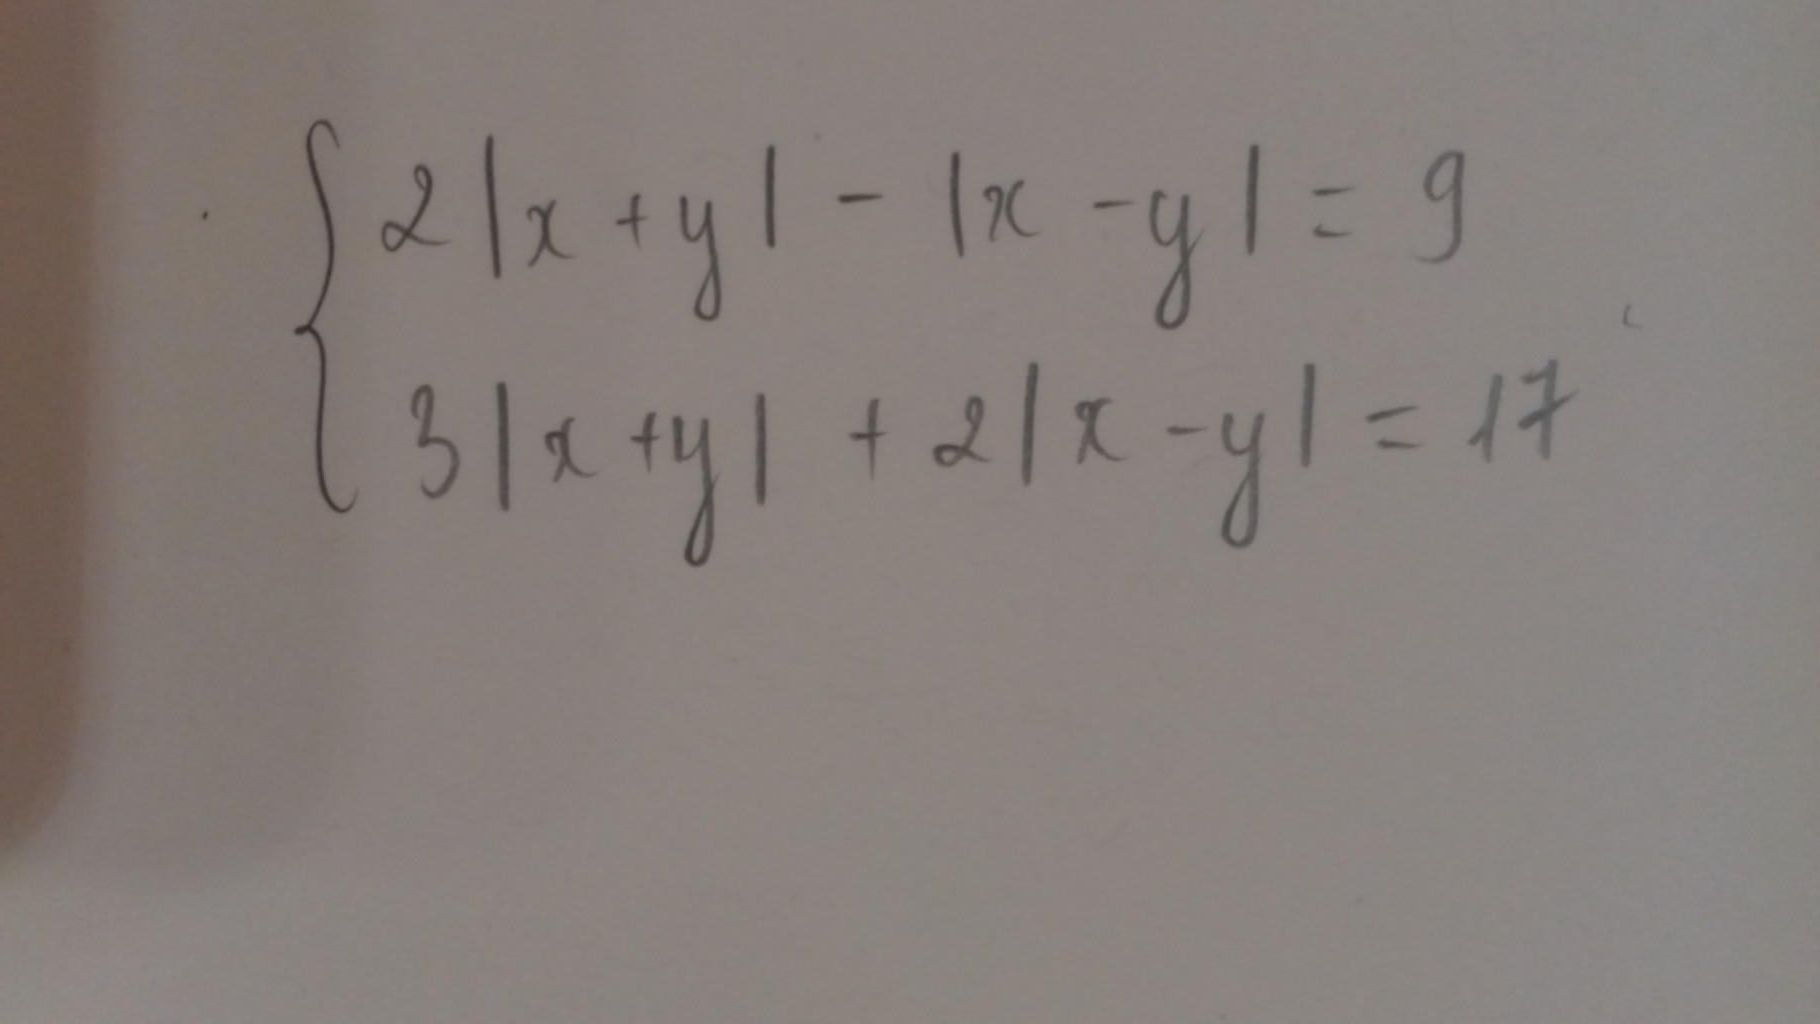 2|x+y| - |x-y| = 9
3|x+y| + 2|x-y| = 17